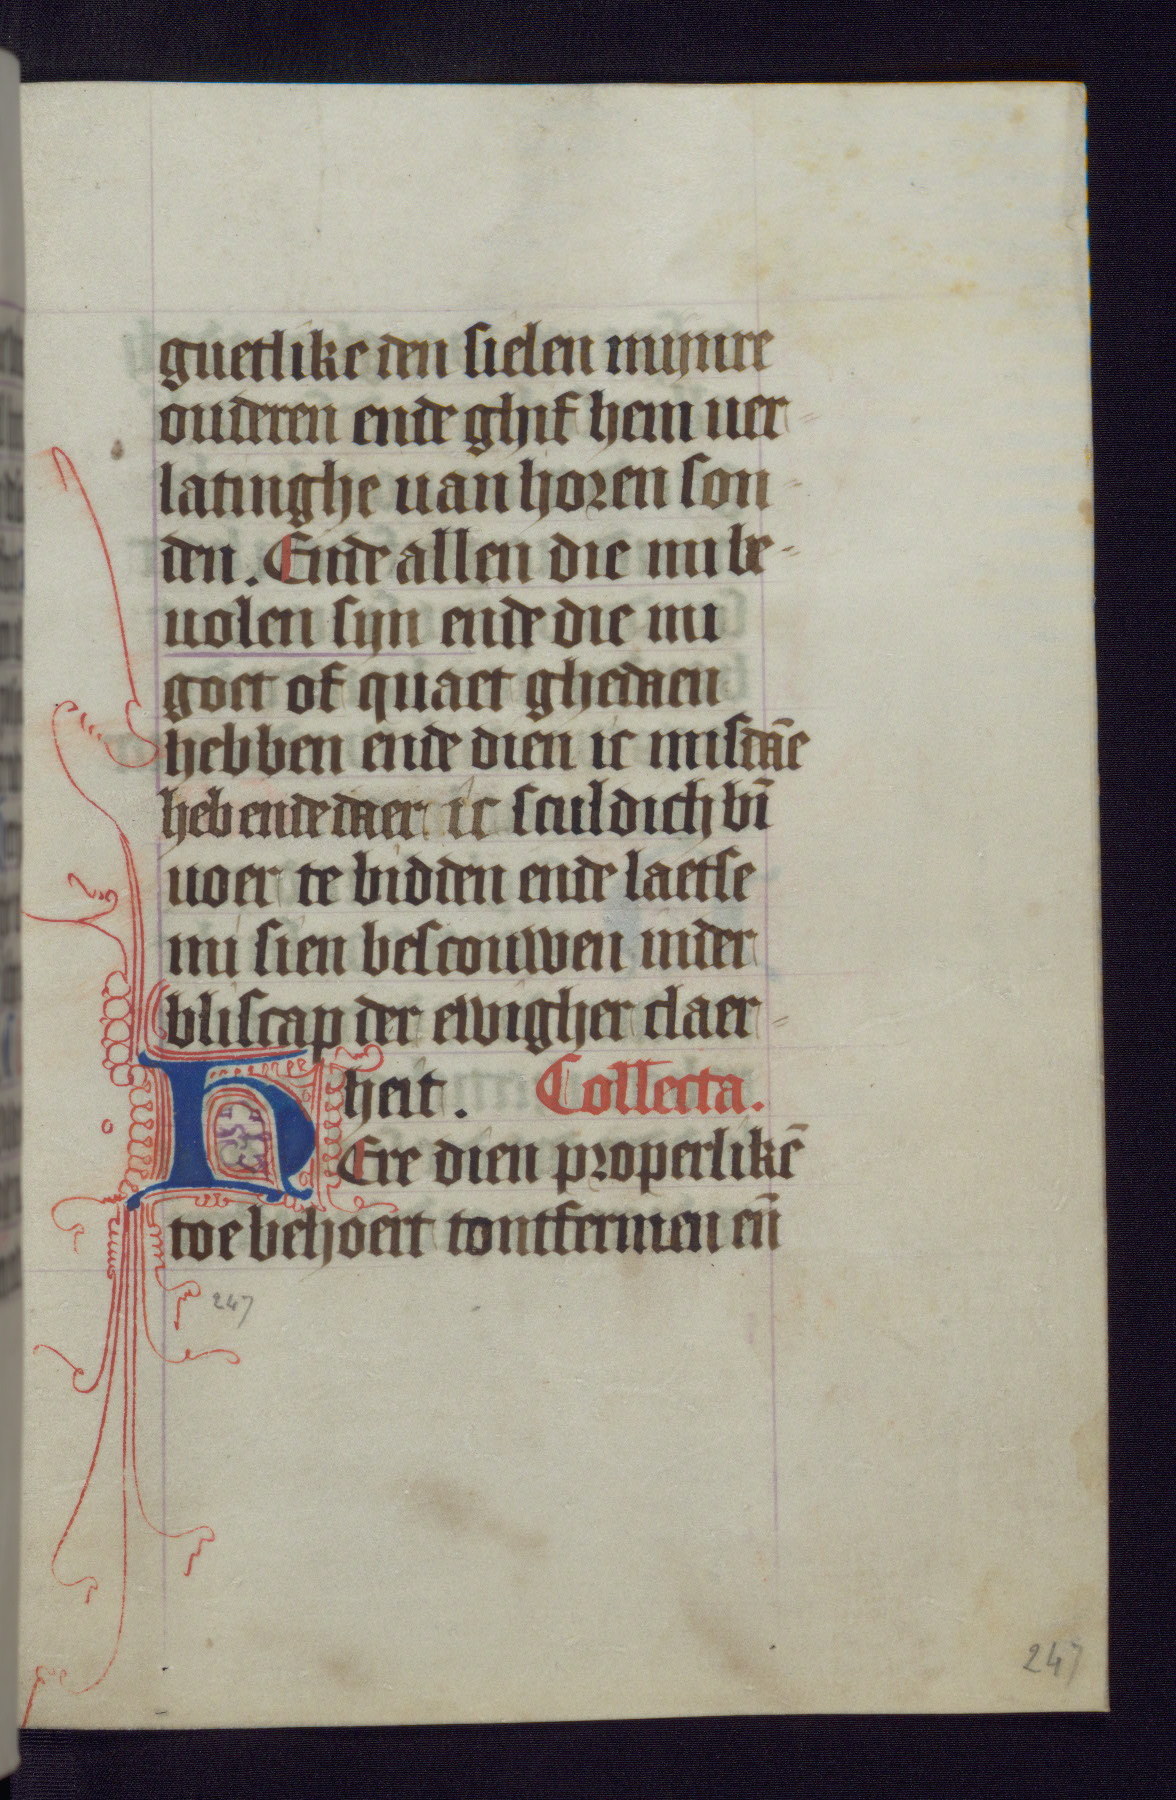 guetlike den sielen mijnre
ouderen ende ghif hem uer-
latinghe uan horen son-
den. Ende allen die mi be-
uolen sijn ende die mi
goet of quaet ghedaen
hebben ende dien ic misdaē
heb ende daer ic sculdich bī
uoer te bidden ende laetse
mi sien bescouwen inder
bliscap der ewigher claer-
heit. Collecta.
HEre dien properlikē
toe behoert tontfermen eñ
247
247